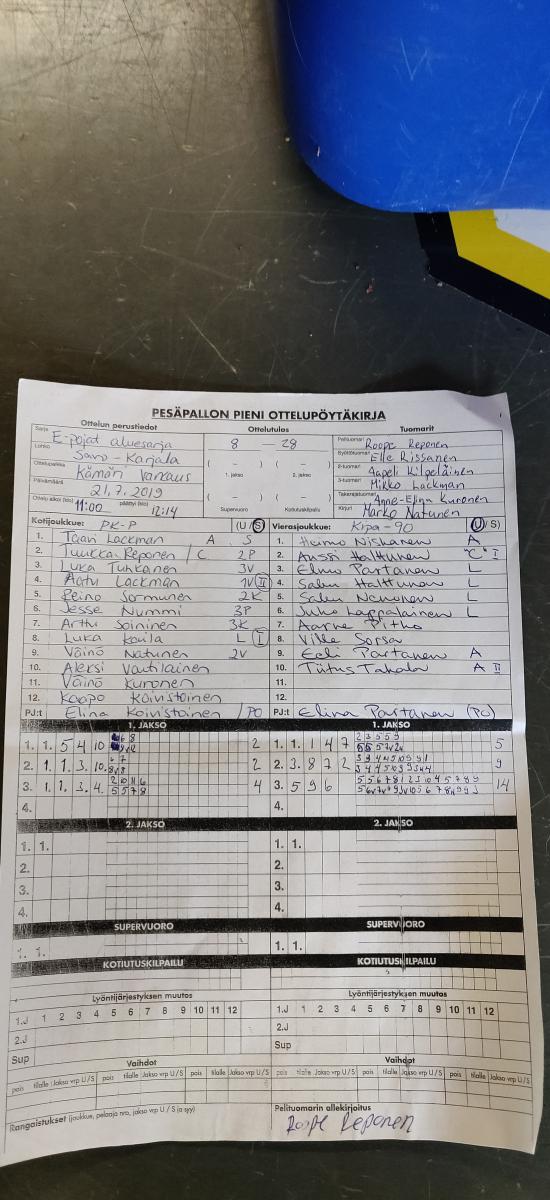 PESÄPALLON PIENI OTTELUPÖYTÄKIRJA
Ottelun perustiedot Ottelutulos Tuomarit
Sarja E-pojat aluesarja 8 — 28 Pelituomari Roope Reponen
Lohko Savo-Karjala Syöttötuomari Elle Rissanen
Ottelupaikka Kämäri Varkaus ( – ) ( – ) 2-tuomari Aapeli Kilpeläinen
1. jakso 2. jakso 3-tuomari Mikko Lackman
Päivämäärä 21.7.2019 ( – ) ( – ) Takarajatuomari Anne-Elina Kuronen
Ottelu alkoi (klo) 11:00 päättyi (klo) 12:14 Supervuoro Kotiutuskilpailu Kirjuri Marko Natunen
Kotijoukkue: PK-P (U/S) Vierasjoukkue: Kipa-90 (U/S)
1. Taari Lackman A S 1. Heimo Niskanen A
2. Tuukka Reponen / C 2P 2. Anssi Halttunen "C" I
3. Luka Tuhkanen 3V 3. Elmo Partanen L
4. Aatu Lackman 1V II 4. Salu Halttunen L
5. Reino Sormunen 2K 5. Salu Nenonen L
6. Jesse Nummi 3P 6. Juho Lappalainen L
7. Arttu Soininen 3K 7. Aarne Pitho
8. Luka Koila L I 8. Ville Sorsa
9. Väinö Natunen 2V 9. Eeli Partanen A
10. Aleksi Vautilainen 10. Tiitus Takala A II
11. Väinö Kuronen 11.
12. Kaapo Koivistoinen 12.
PJ:t Elina Koivistoinen /PO PJ:t Elina Partanen (PO)
1. JAKSO 1. JAKSO
1. 1. 5 4 10 2 1. 1. 1 4 7 2 3 5 5 9 5
2. 1. 1. 3. 10. 2 2. 3. 8 7 2 9
3. 1. 1. 3. 4. 5 5 7 8 4 3. 5 9 6 14
4. 4.
2. JAKSO 2. JAKSO
1. 1. 1. 1.
2. 2.
3. 3.
4. 4.
SUPERVUORO SUPERVUORO
1. 1. 1. 1.
KOTIUTUSKILPAILU KOTIUTUSKILPAILU
Lyöntijärjestyksen muutos Lyöntijärjestyksen muutos
1.J 1 2 3 4 5 6 7 8 9 10 11 12 1.J 1 2 3 4 5 6 7 8 9 10 11 12
2.J 2.J
Sup Sup
Vaihdot Vaihdot
pois tilalle Jakso vrp U/S pois tilalle Jakso vrp U/S pois tilalle Jakso vrp U/S pois tilalle Jakso vrp U/S pois tilalle Jakso vrp U/S pois tilalle Jakso vrp U/S
Rangaistukset (joukkue, pelaaja nro, jakso vrp U/S ja syy) Pelituomarin allekirjoitus
Roope Reponen